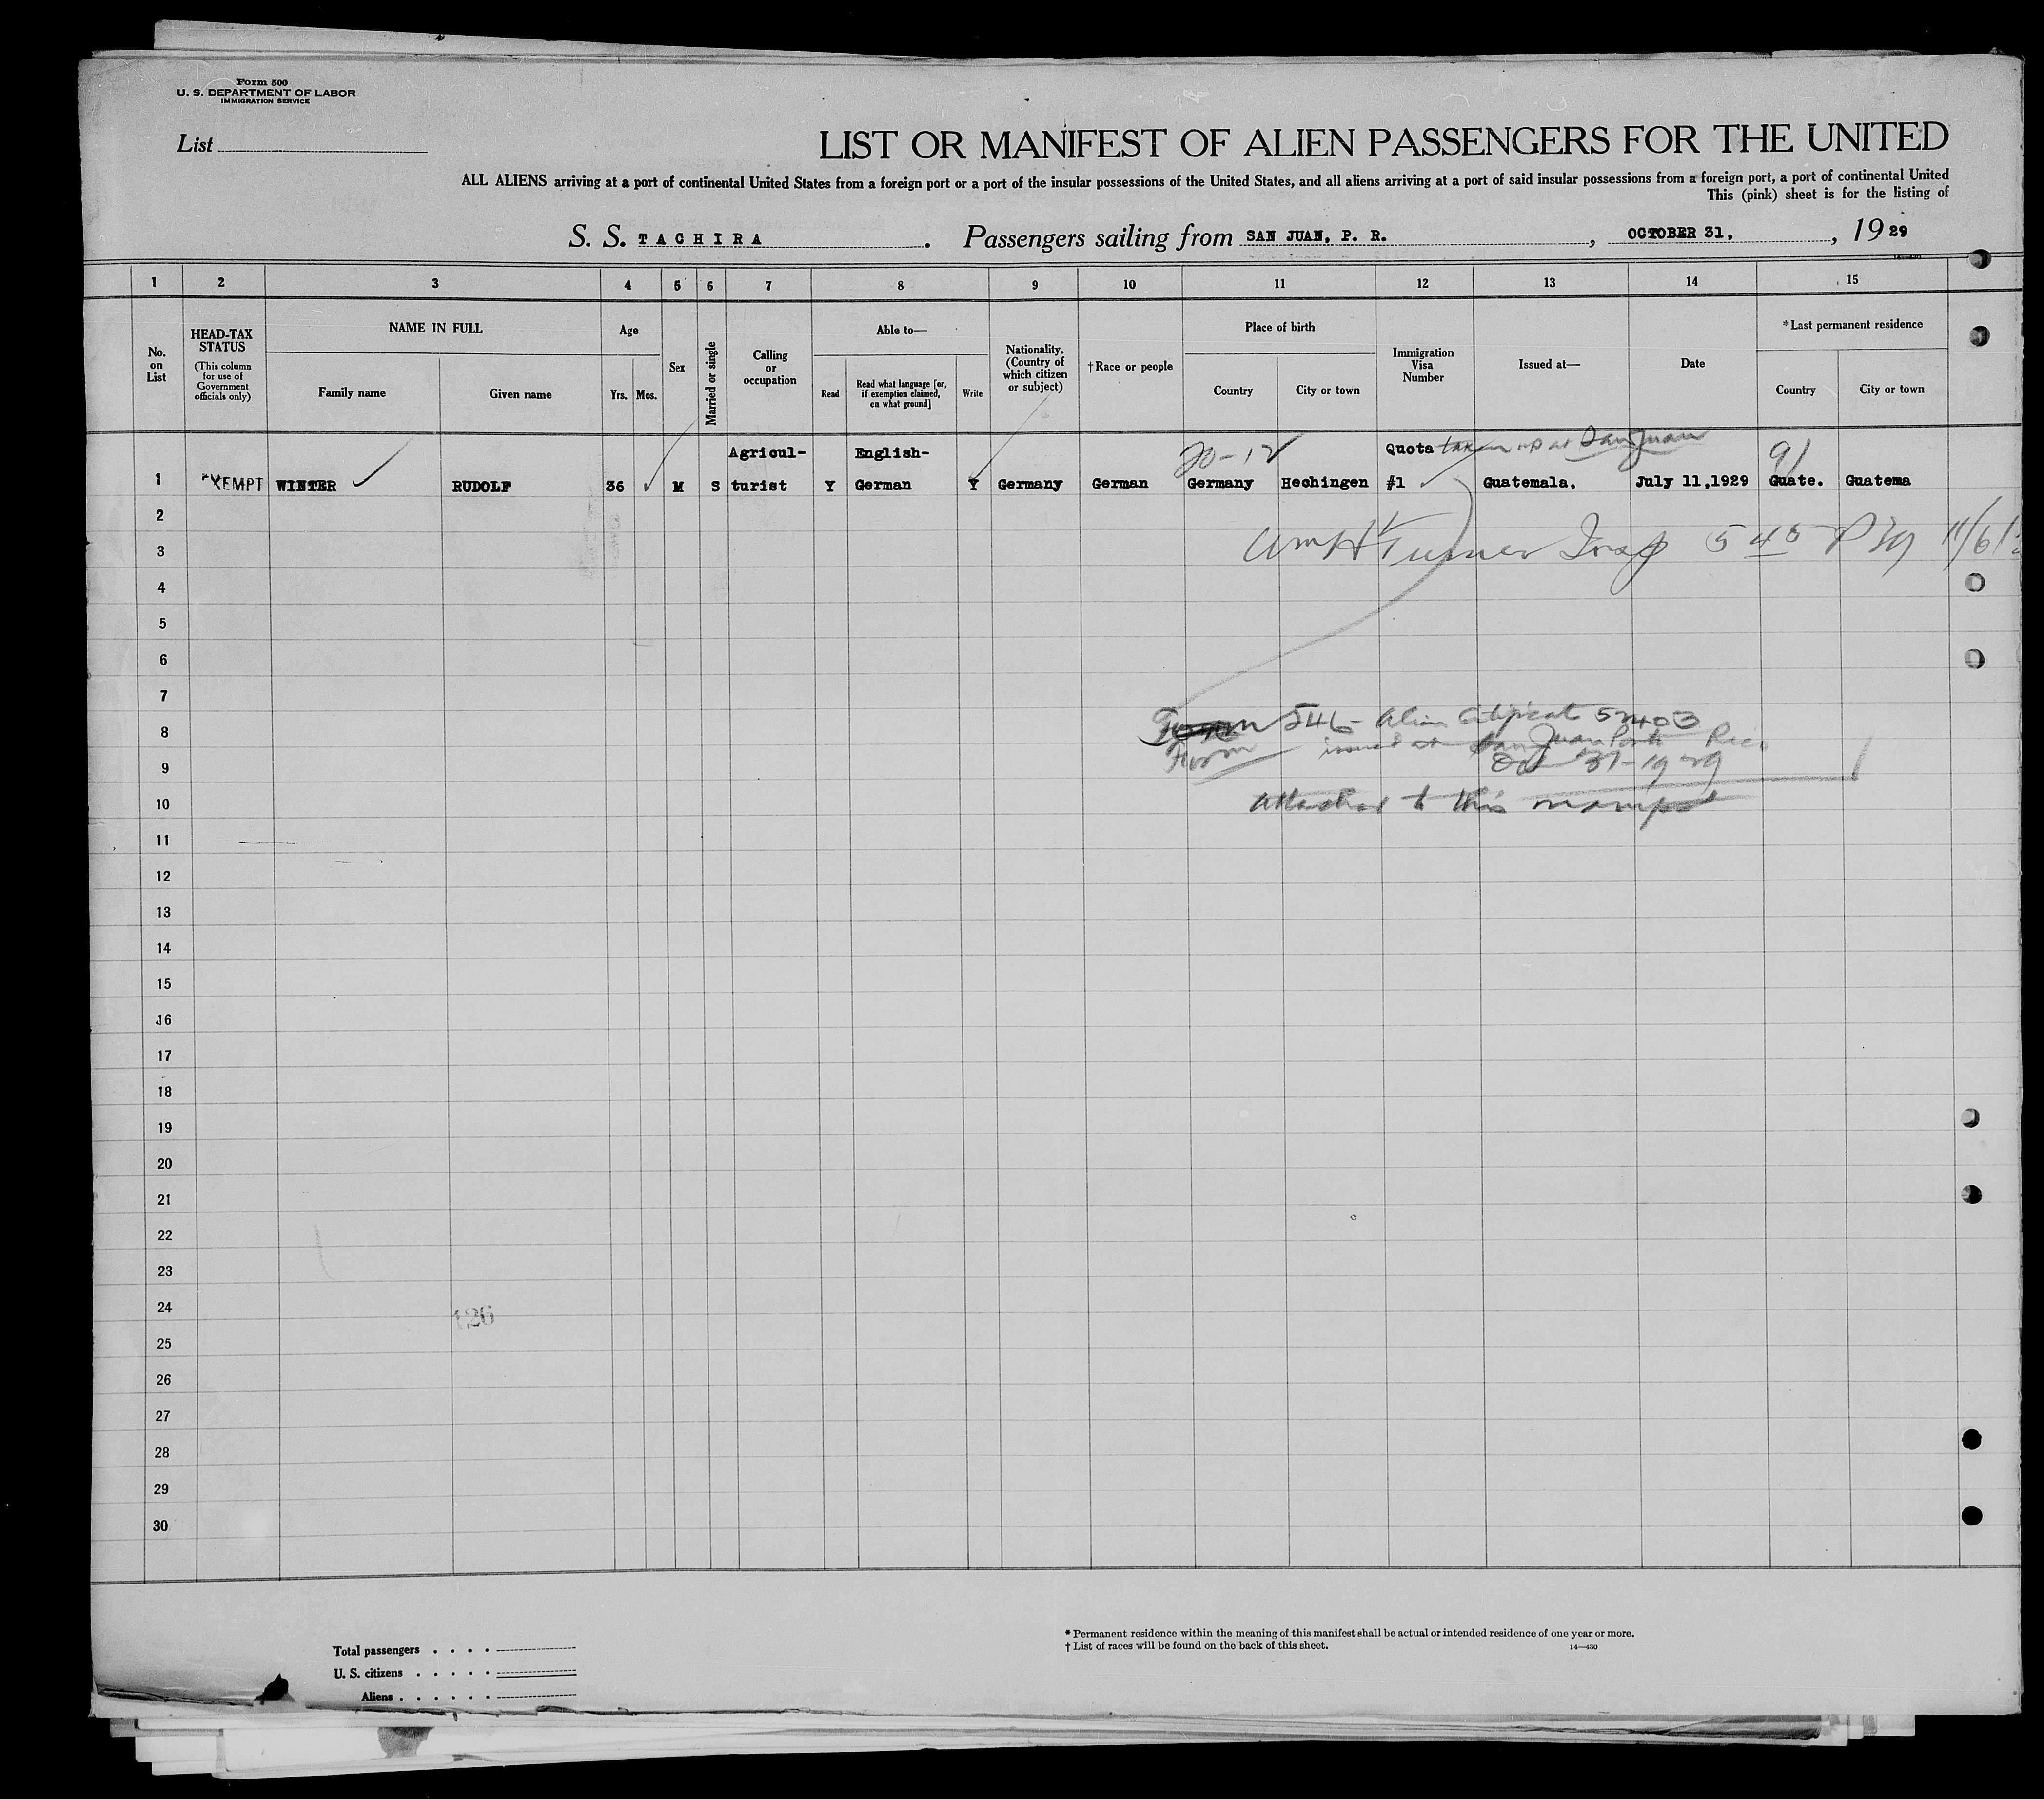 Form 500
U. S. DEPARTMENT OF LABOR
IMMIGRATION SERVICE
List
LIST OR MANIFEST OF ALIEN PASSENGERS FOR THE UNITED
ALL ALIENS arriving at a port of continental United States from a foreign port or a port of the insular possessions of the United States, and all aliens arriving at a port of said insular possessions from a foreign port, a port of continental United
This (pink) sheet is for the listing of
S. S. TACHIRA . Passengers sailing from SAN JUAN, P. R. , OCTOBER 31, , 19 29
1 2 3 4 5 6 7 8 9 10 11 12 13 14 15
No. on List
HEAD-TAX STATUS
(This column for use of Government officials only)
NAME IN FULL
Family name
Given name
Age
Yrs. Mos.
Sex
Married or single
Calling or occupation
Able to—
Read
Read what language [or, if exemption claimed, on what ground]
Write
Nationality. (Country of which citizen or subject)
†Race or people
Place of birth
Country
City or town
Immigration Visa Number
Issued at—
Date
*Last permanent residence
Country
City or town
20-12
Quota taken up at San Juan
91
1 EXEMPT WINTER RUDOLF 36 M S Agricul-turist Y English-German Y Germany German Germany Hechingen #1 Guatemala. July 11,1929 Guate. Guatema
2
3
Wm H Turner Insp 5 45 P 11/6/
4
5
6
7
8
Form 546- Alien Certificate 52403
Form issued at San Juan Porto Rico
9
Oct 31-1929
10
Attached to this manifest
11
12
13
14
15
16
17
18
19
20
21
22
23
24
126
25
26
27
28
29
30
Total passengers . . . .
U. S. citizens . . . . .
Aliens . . . . . .
* Permanent residence within the meaning of this manifest shall be actual or intended residence of one year or more.
† List of races will be found on the back of this sheet. 14—450